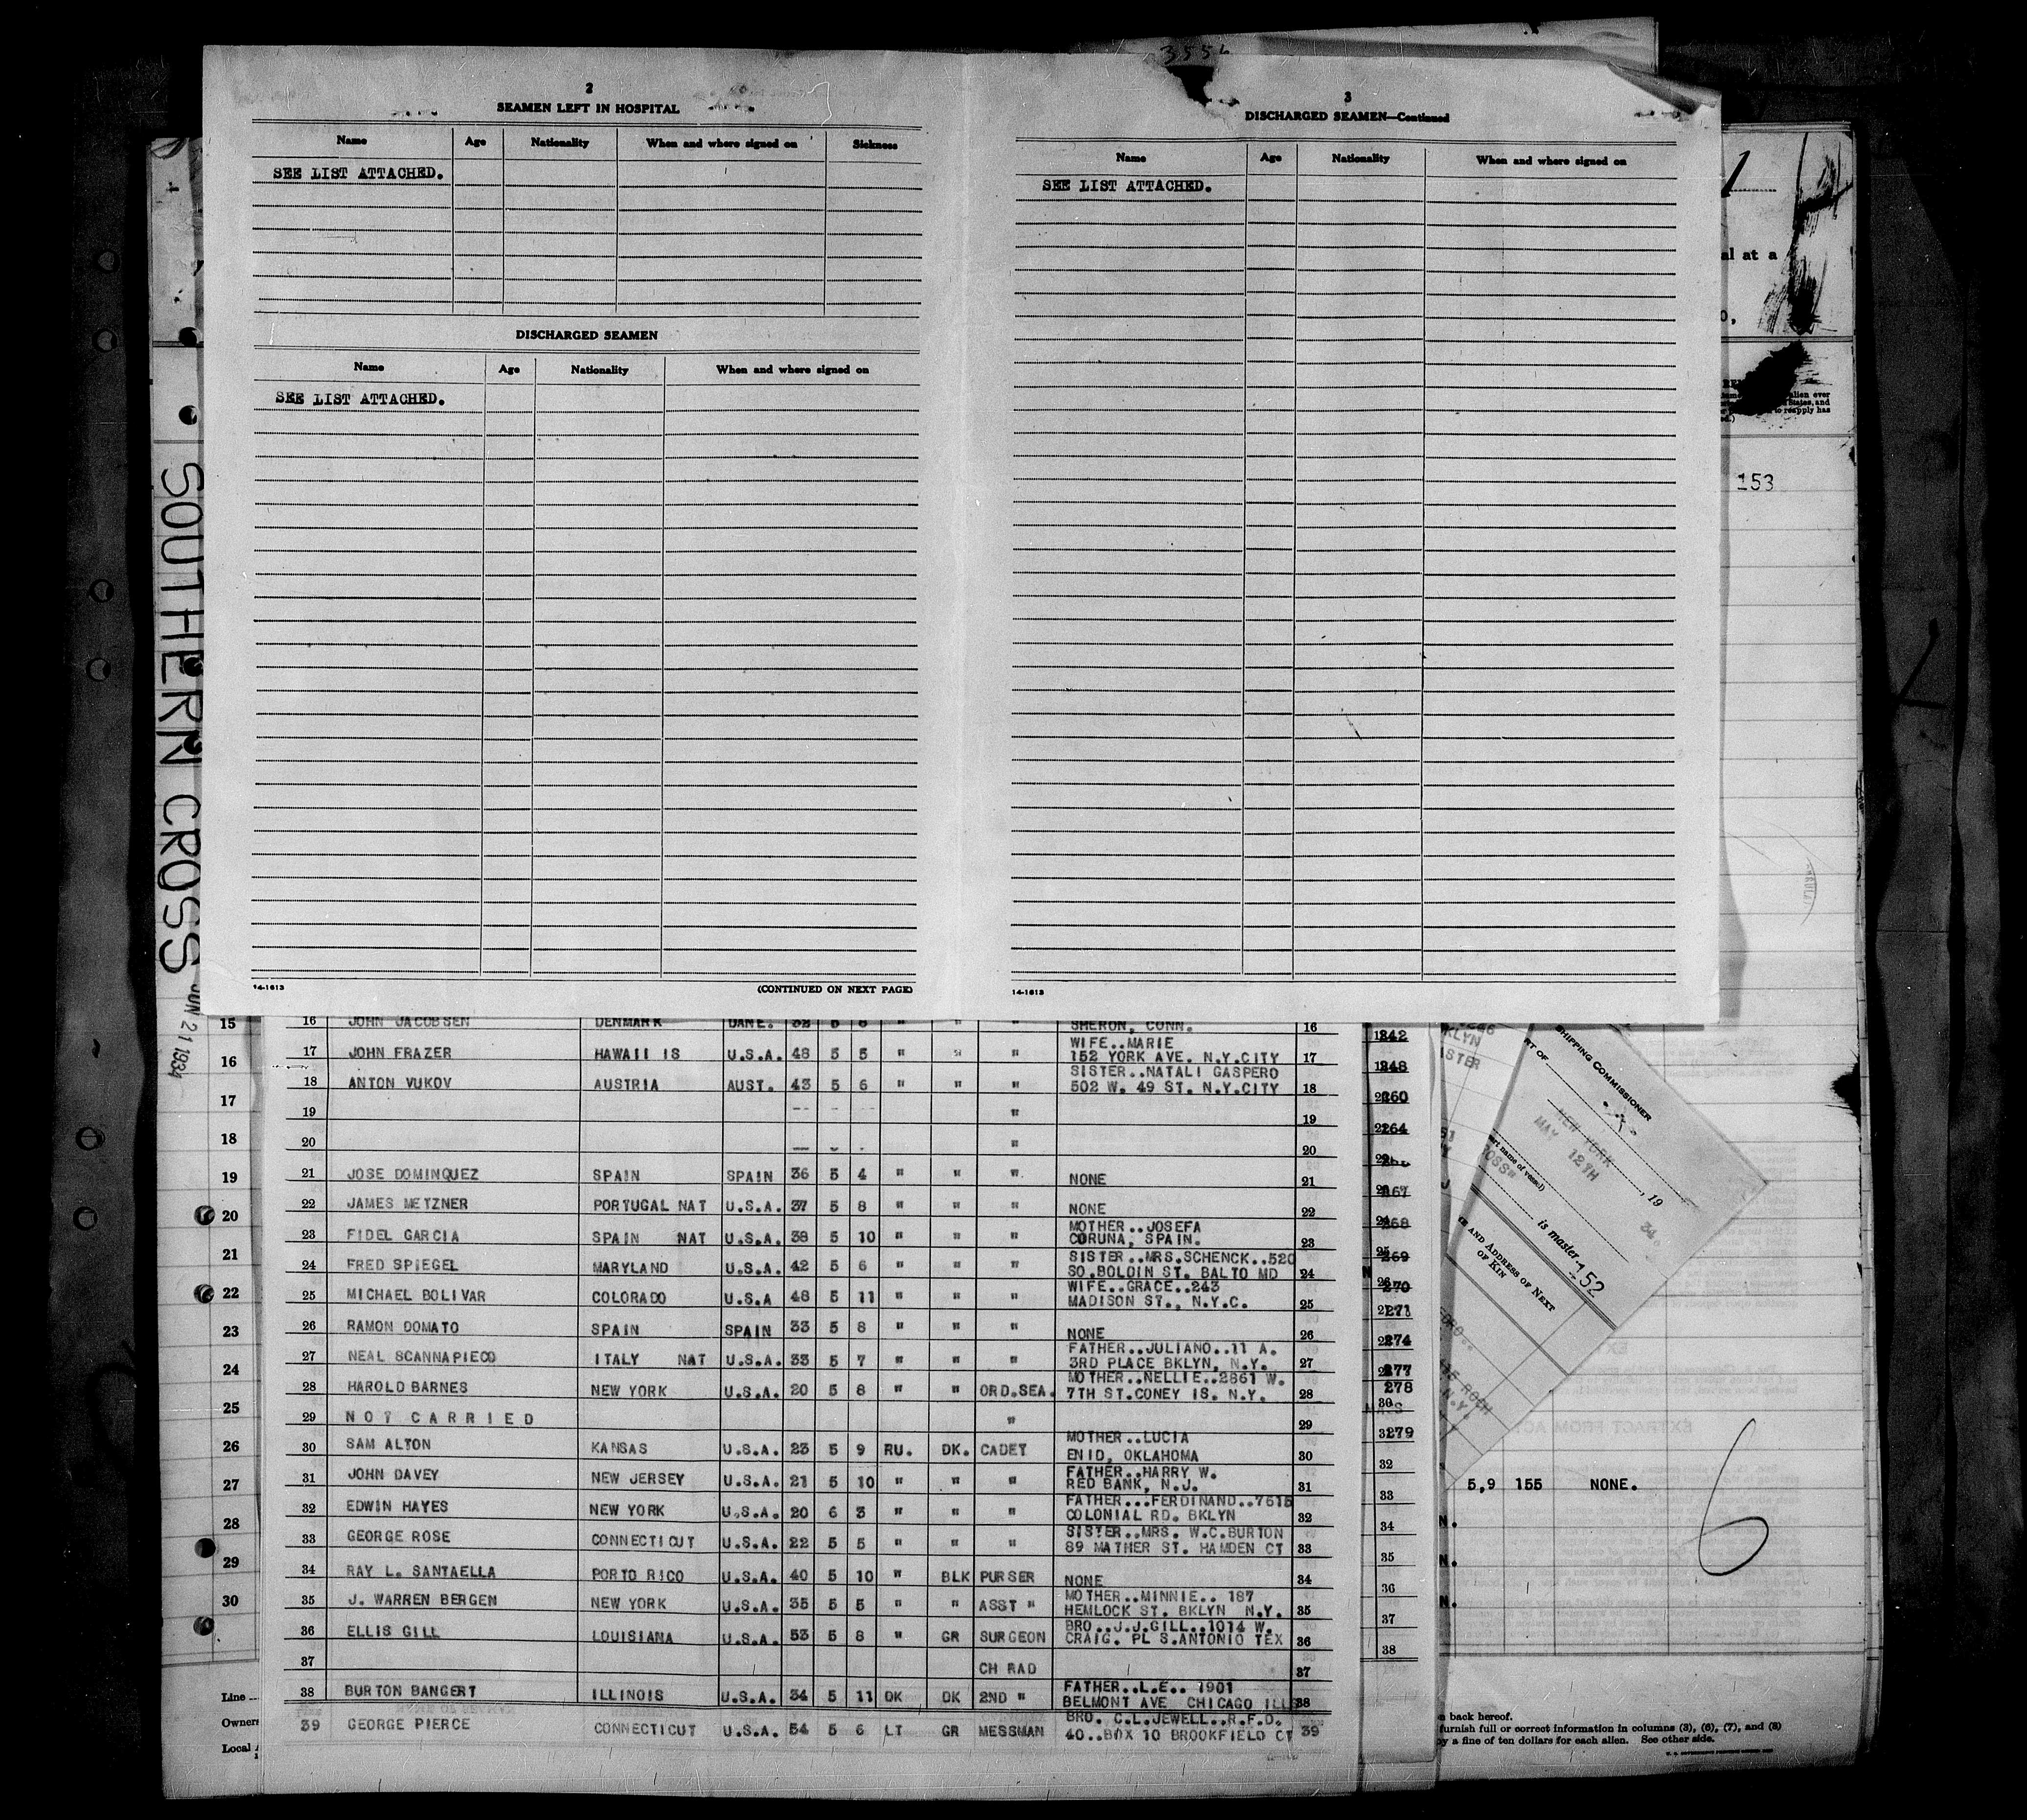 355
2
SEAMEN LEFT IN HOSPITAL
Name Age Nationality When and where signed on Sickness
SEE LIST ATTACHED.
DISCHARGED SEAMEN
Name Age Nationality When and where signed on
SEE LIST ATTACHED.
14-1613 (CONTINUED ON NEXT PAGE)
3
DISCHARGED SEAMEN—Continued
Name Age Nationality When and where signed on
SEE LIST ATTACHED.
14-1613
SOUTHERN CROSS
JUN 21 1934
1
al at a
alien ever
States, and
to reapply has
153
15
16
17
18
19
20
21
22
23
24
25
26
27
28
29
30
Line
Owners
Local
16 JOHN JACOBSEN DENMARK DANE. 32 5 8 " " " SHERON, CONN. 16
17 JOHN FRAZER HAWAII IS U.S.A. 48 5 5 " " " WIFE..MARIE
152 YORK AVE. N.Y.CITY 17
18 ANTON VUKOV AUSTRIA AUST. 43 5 6 " " " SISTER..NATALI GASPERO
502 W. 49 ST. N.Y.CITY 18
19 -- - - " 19
20 -- - - " 20
21 JOSE DOMINQUEZ SPAIN SPAIN 36 5 4 " " " NONE 21
22 JAMES METZNER PORTUGAL NAT U.S.A. 37 5 8 " " " NONE 22
23 FIDEL GARCIA SPAIN NAT U.S.A. 38 5 10 " " " MOTHER..JOSEFA
CORUNA, SPAIN. 23
24 FRED SPIEGEL MARYLAND U.S.A. 42 5 6 " " " SISTER..MRS.SCHENCK..520
SO.BOLDIN ST. BALTO MD 24
25 MICHAEL BOLIVAR COLORADO U.S.A 48 5 11 " " " WIFE..GRACE..243
MADISON ST., N.Y.C. 25
26 RAMON DOMATO SPAIN SPAIN 33 5 8 " " " NONE 26
27 NEAL SCANNAPIECO ITALY NAT U.S.A. 33 5 7 " " " FATHER..JULIANO..11 A.
3RD PLACE BKLYN, N.Y. 27
28 HAROLD BARNES NEW YORK U.S.A. 20 5 8 " " ORD.SEA. MOTHER..NELLIE..2861 W.
7TH ST.CONEY IS. N.Y. 28
29 NOT CARRIED " 29
30 SAM ALTON KANSAS U.S.A. 23 5 9 RU. DK. CADET MOTHER..LUCIA
ENID, OKLAHOMA 30
31 JOHN DAVEY NEW JERSEY U.S.A. 21 5 10 " " " FATHER..HARRY W.
RED BANK, N.J. 31
32 EDWIN HAYES NEW YORK U.S.A. 20 6 3 " " " FATHER...FERDINAND..7615
COLONIAL RD. BKLYN 32
33 GEORGE ROSE CONNECTICUT U.S.A. 22 5 5 " " " SISTER..MRS. W.C.BURTON
89 MATHER ST. HAMDEN CT 33
34 RAY L. SANTAELLA PORTO RICO U.S.A. 40 5 10 " BLK PURSER NONE 34
35 J. WARREN BERGEN NEW YORK U.S.A. 35 5 5 " " ASST " MOTHER..MINNIE.. 187
HEMLOCK ST. BKLYN N.Y. 35
36 ELLIS GILL LOUISIANA U.S.A. 53 5 8 " GR SURGEON BRO...J.J.GILL..1014 W.
CRAIG. PL S.ANTONIO TEX 36
37 CH RAD 37
38 BURTON BANGERT ILLINOIS U.S.A. 34 5 11 DK DK 2ND " FATHER..L.E.. 1901
BELMONT AVE CHICAGO ILLS 38
39 GEORGE PIERCE CONNECTICUT U.S.A. 54 5 6 LT GR MESSMAN BRO. C.L.JEWELL..R.F.D.
40..BOX 10 BROOKFIELD CT 39
242
248
260
264
267
268
269
270
271
274
277
278
279
32
33
34
35
36
37
38
SHIPPING COMMISSIONER
NEW YORK
MAY 12TH , 19 34
name of vessel)
is master
152
AND ADDRESS OF NEXT
OF KIN
5,9 155 NONE.
6
back hereof.
furnish full or correct information in columns (3), (6), (7), and (8)
by a fine of ten dollars for each alien. See other side.